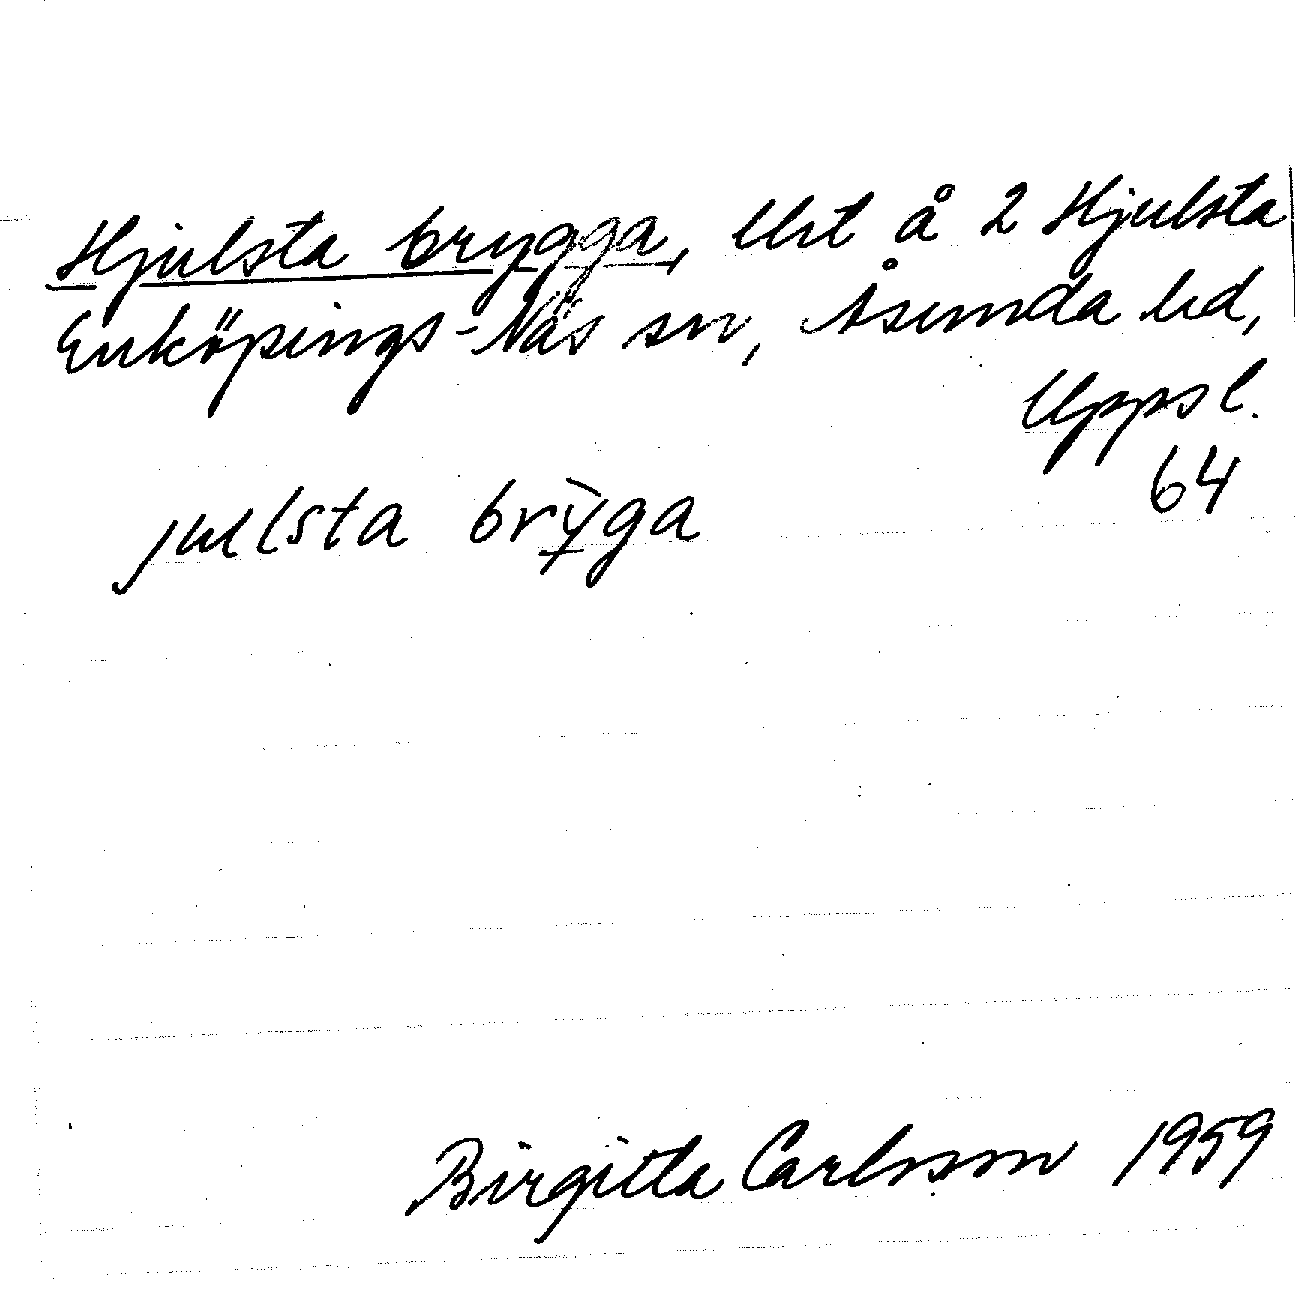 Hjulsta brygga, lht å 2 Hjulsta
Enköpings-Näs sn, Åsunda hd,
Uppsl.
64
jullsta brỳga
Birgitta Carlsson 1959